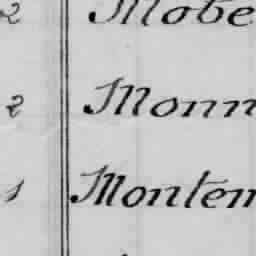 2 Mobe
2 Monn
1 Montem